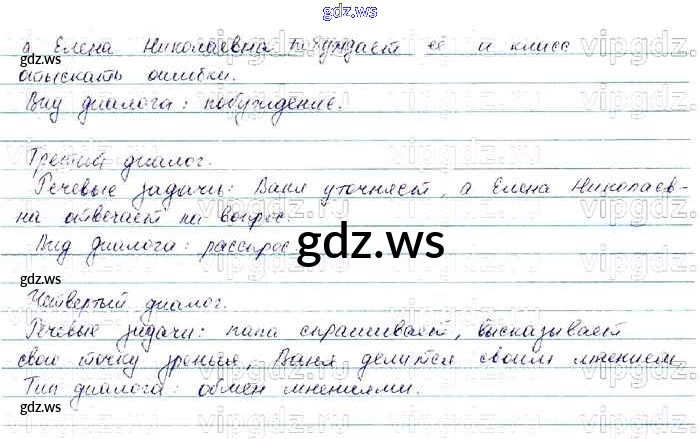 gdz.ws
а Елена Николаевна побуждает её и класс
gdz.ws
отыскать ошибки.
Вид диалога: побуждение.
gdz.ws
Третий диалог.
Речевые задачи: Ваня уточняет, а Елена Николаев-
gdz.ws
на отвечает на вопрос.
Вид диалога: расспрос.
gdz.ws
gdz.ws
Четвертый диалог.
Речевые задачи: папа спрашивает, высказывает
gdz.ws
свою точку зрения, Ваня делится своим мнением
Тип диалога: обмен мнениями.
gdz.ws
vipgdz.ru